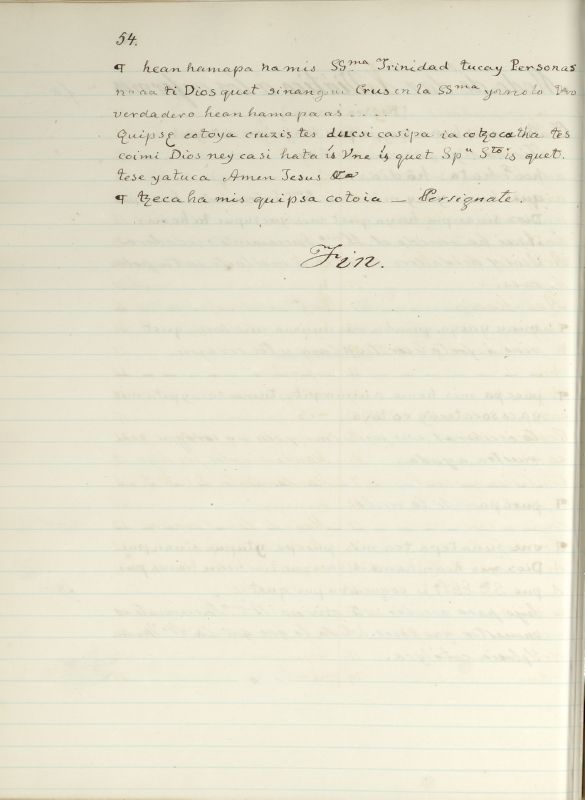 54.
¶ hean hamapa na mis SSma Trinidad tucay Personas
naaa ti Dios quet sinangui Crus en la SSma y uno lo
verdadero hean hamapa as . . . .
Quipse cotoya cruzis tes ducsi casipa ia cotzocatha tes
coimi Dios ney casi hata ís Vne ís quet Spu Sto is quet.
tese yatuca Amen Jesus
¶ tzecaha mis quipsa cotoia — Persignate.
Fin.